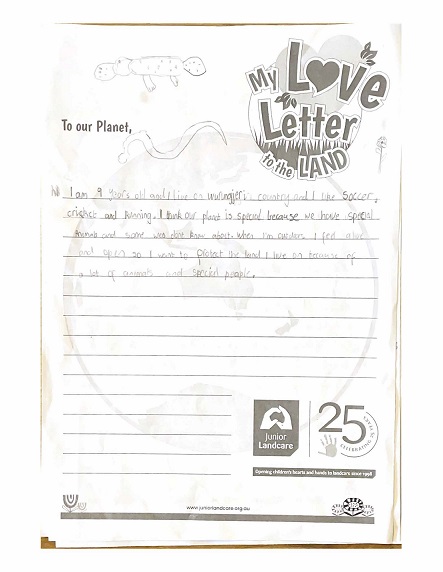 My Love
Letter
to the LAND
To our Planet,
I am 9 years old and I live on wurungjeri country and I like soccer,
cricket and running. I think our planet is special because we have special
animals and some we dont know about. When I'm outdoors I feel alive
and open so I want to protect the land I live on because of
a lot of animals and special people.
Junior
Landcare
25
CELEBRATING 25 YEARS
Opening children's hearts and hands to landcare since 1998
www.juniorlandcare.org.au